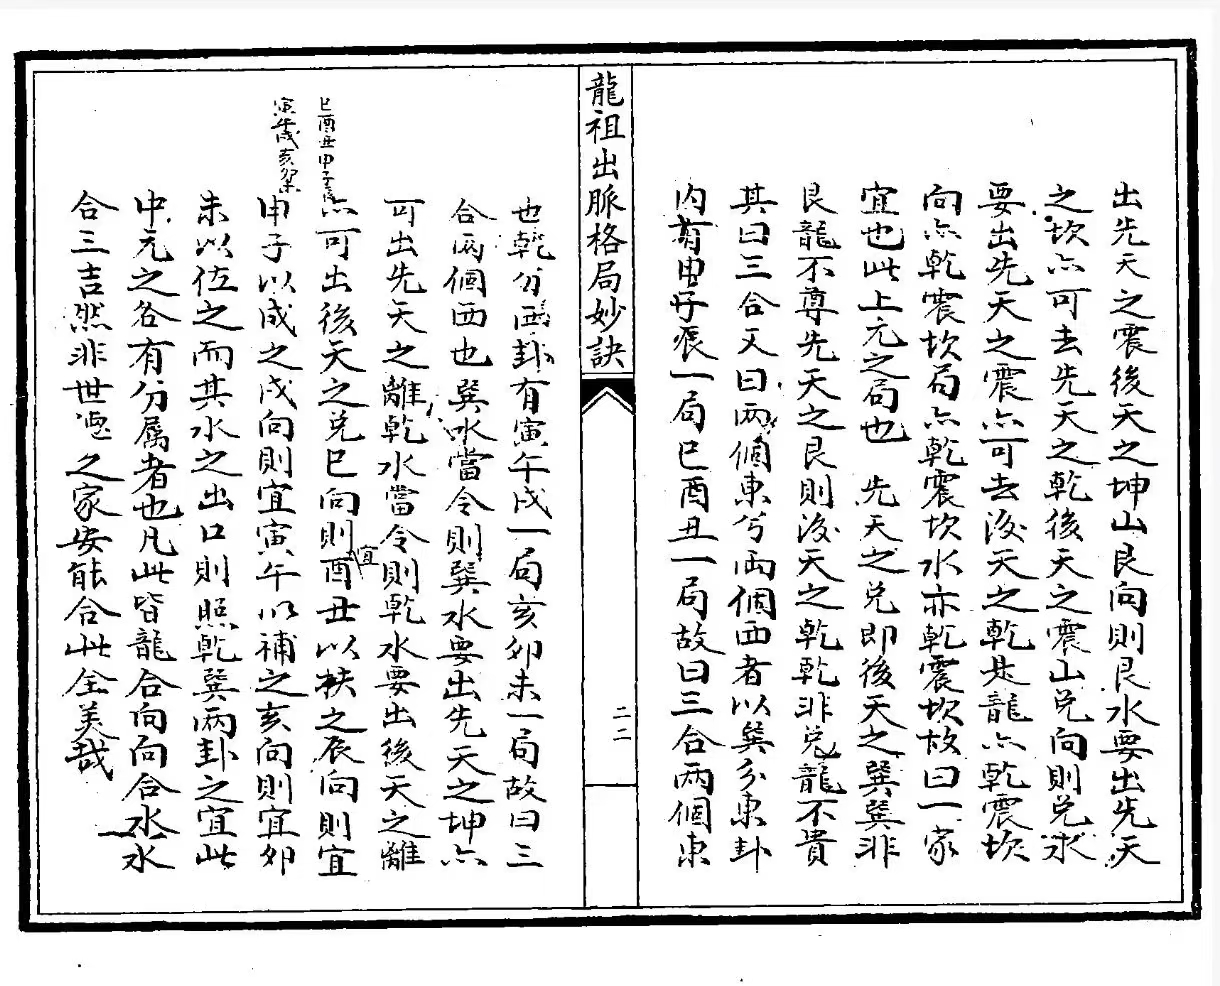 出先天之震後天之坤山艮向則艮水要出先天
之坎亦可去先天之乾後天之震山兌向則兌水
要出先天之震亦可去後天之乾是龍亦乾震坎
向亦乾震坎局亦乾震坎水亦乾震坎故曰一家
宜也此上元之局也 先天之兌即後天之巽巽非
艮龍不尊先天之艮則後天之乾乾非兌龍不貴
其曰三合又曰兩個東兮兩個西者以巽分東卦
內有申子辰一局巳酉丑一局故曰三合兩個東
龍祖出脈格局妙訣
二二
也乾分西卦有寅午戌一局亥卯未一局故曰三
合兩個西也巽水當令則巽水要出先天之坤亦
可出先天之離乾水當令則乾水要出後天之離
亦可出後天之兌巳向則宜酉丑以扶之辰向則宜
申子以成之戌向則宜寅午以補之亥向則宜卯
未以佐之而其水之出口則照乾巽兩卦之宜此
中元之各有分屬者也凡此皆龍合向向合水水
合三吉然非世德之家安能合此全美哉
巳酉丑申子辰
寅午戌亥卯未